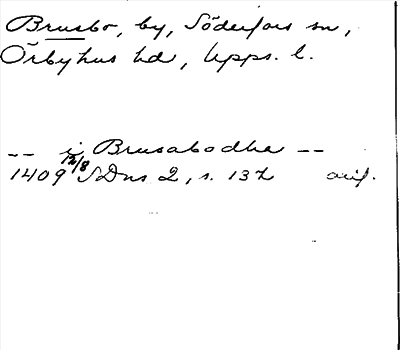 Brusbo, by, Söderfors sn,
Örbyhus hd, Upps. l.
-- i Brusabodha --
1409 12/8 SDns 2, s. 132 orig.